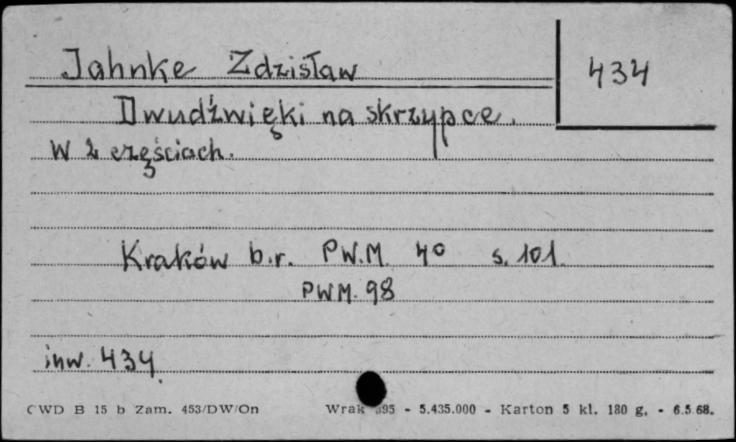 Jahnke Zdzisław
434
Dwudźwięki na skrzypce.
W 2 częściach.
Kraków b.r. PW.M. 4° s. 101.
PWM. 98
inw. 434.
CWD B 15 b Zam. 453/DW/On Wrak - 5.435.000 - Karton 5 kl. 180 g. - 6.5.68.